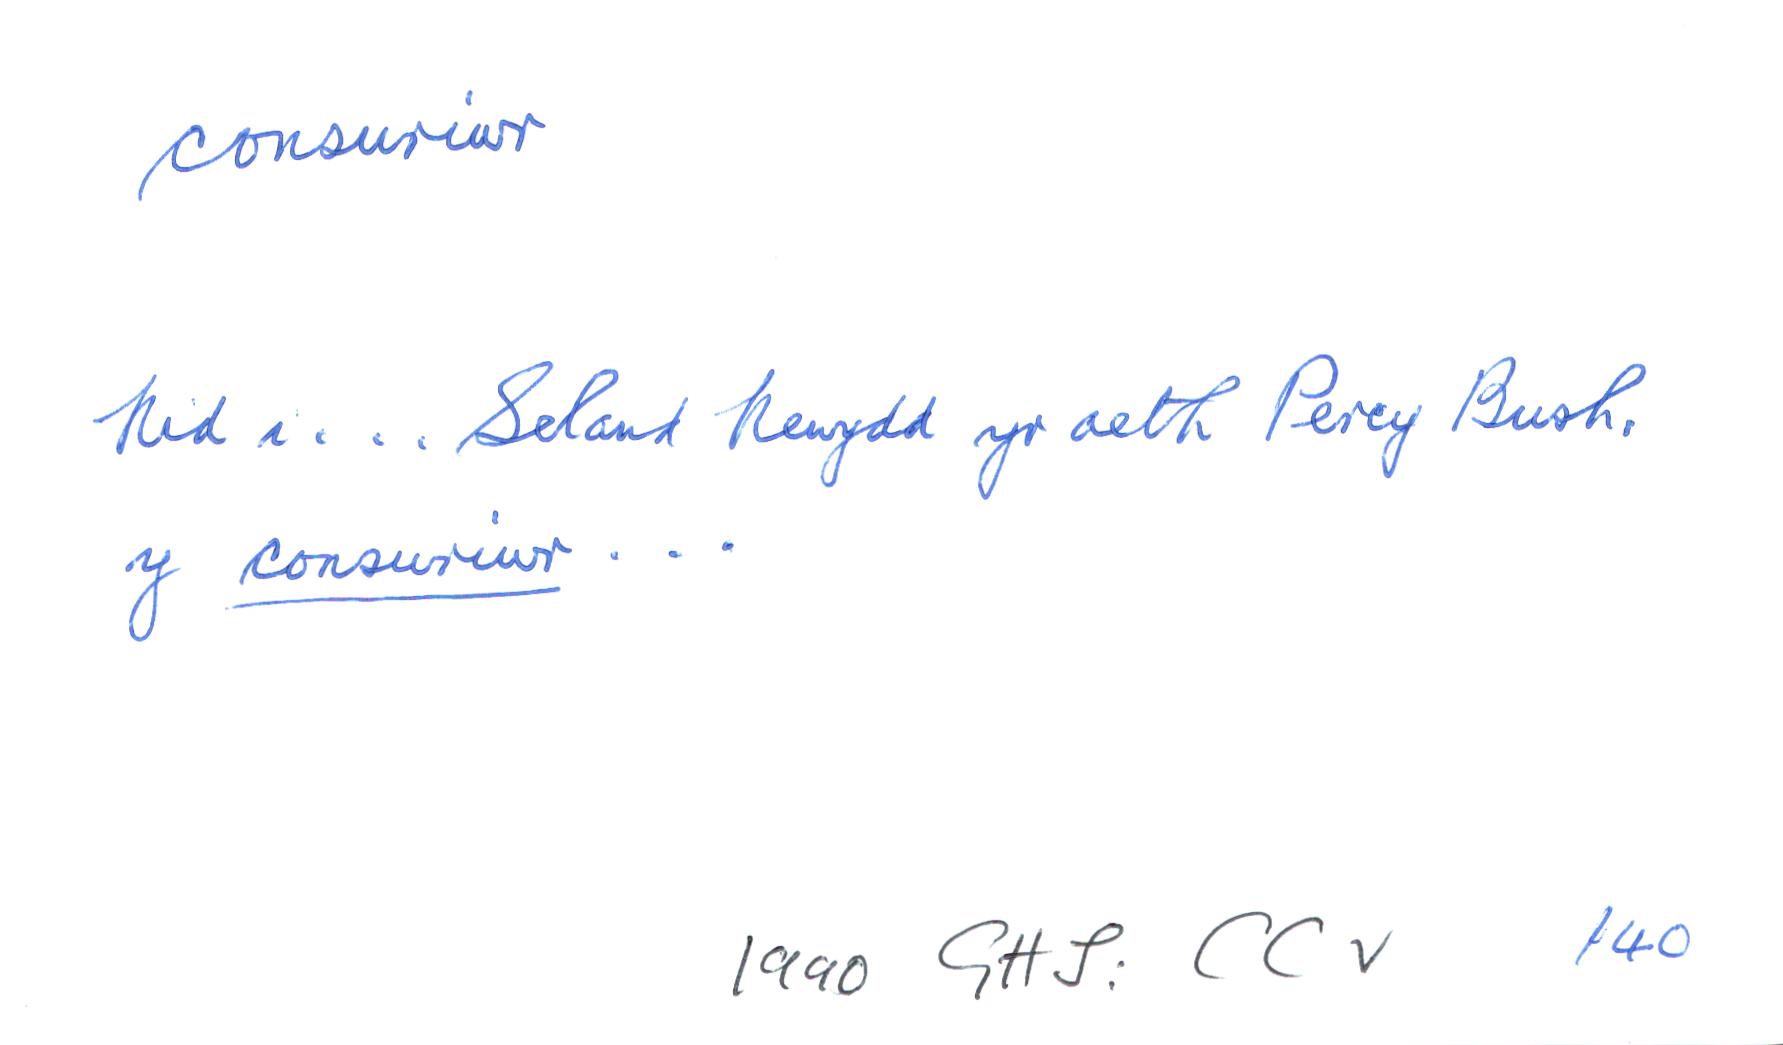 consuriwr
Nid i.... Seland Newydd yr aeth Percy Bush.
y consuriwr ...
1990 GHJ: CCV 140